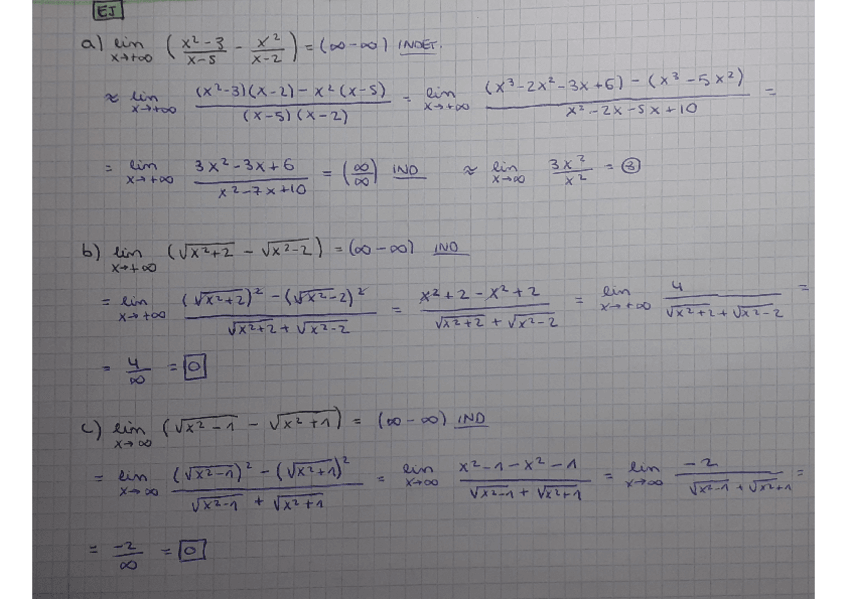 EJ
a) lim x→+∞ ( x²-3 / x-5 - x² / x-2 ) = (∞-∞) INDET.
≈ lim x→+∞ (x²-3)(x-2) - x²(x-5) / (x-5)(x-2) = lim x→+∞ (x³-2x²-3x+6) - (x³-5x²) / x²-2x-5x+10 =
= lim x→+∞ 3x²-3x+6 / x²-7x+10 = (∞/∞) IND ≈ lim x→∞ 3x² / x² = 3
b) lim x→+∞ (√x²+2 - √x²-2) = (∞-∞) IND
= lim x→+∞ (√x²+2)² - (√x²-2)² / √x²+2 + √x²-2 = x²+2-x²+2 / √x²+2 + √x²-2 = lim x→+∞ 4 / √x²+2 + √x²-2 =
= 4/∞ = 0
c) lim x→∞ (√x²-1 - √x²+1) = (∞-∞) IND
= lim x→∞ (√x²-1)² - (√x²+1)² / √x²-1 + √x²+1 = lim x→∞ x²-1-x²-1 / √x²-1 + √x²+1 = lim x→∞ -2 / √x²-1 + √x²+1 =
= -2/∞ = 0